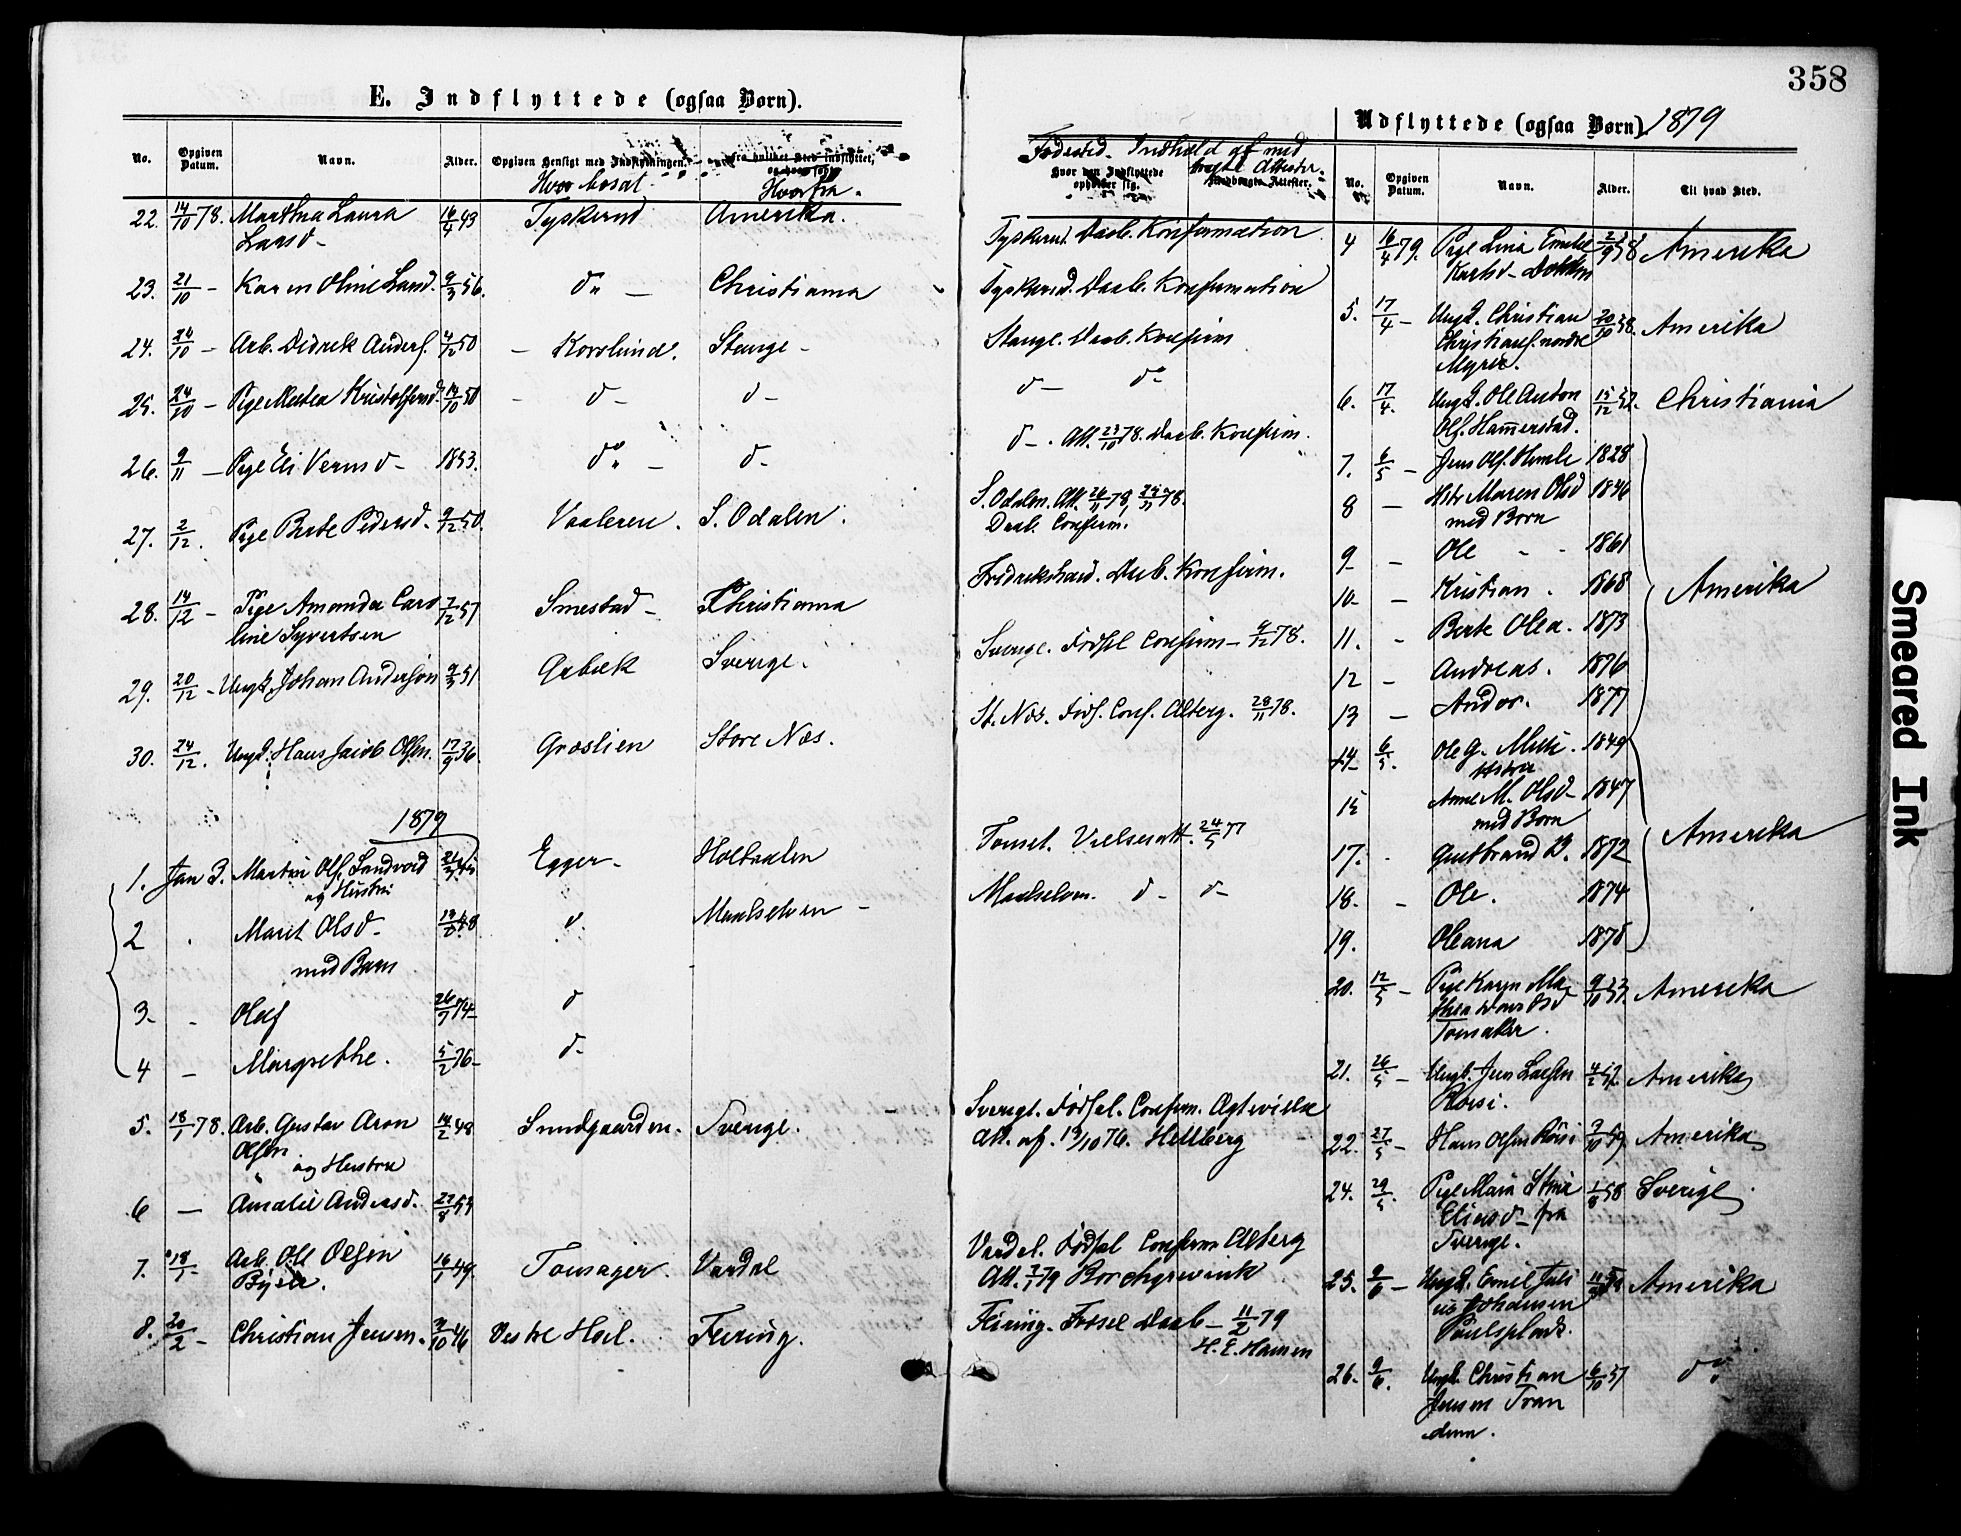 358
E. Indflyttede (ogsaa Børn).
No. Opgiven Datum. Navn. Alder. Opgiven Hensigt med Indflytningen. fra hvilket Sted indflyttet,
Hvor bosat. Hvorfra.
22. 14/10 78. Marthea Laura 16/4 43 Tyskerud Amerika.
Larsd-
23. 21/10 - Karen Oline Land. 9/3 56. do - Christiania
24. 24/10 - Arb. Didrek Anders. 4/12 50 - Korslund. Stange -
25. 24/10 - Pige Kristoffersd. 14/10 50 - d- d-
26. 9/11 - Pige Eli Vernsd- 1853. do - d-
27. 2/12. Pige Berte Pedersd. 9/12 50. Vaaleren. S. Odalen.
28. 14/12 - Pige Amanda Caro 7/12 57 Smestad - Christiania
line Syvertsen
29. 20/12 - Ungk. Johan Anderson 2/3 51 Gasbæk Sverige.
30. 24/12. Ungk. Hans Jacob Olsen. 17/9 36. Graslien Store Næs.
1879
1. Jan 3. Martin Ols. Sandvold Egger - Holtaalen
og Hustru
2 . Marit Olsd- d. Maalselven -
med Barn
3. - Oluf 26/7 74- d
4 - Margrethe. 5/2 76- d-
5. 18/1 78. Arb. Gustav Aron 14/2 48 Sundgaarden. Sverige.
Olsen og Hustru
6 - Amalie Andersd. 22/8 53
7. 18/1 - Arb. Ole Olsen 16/1 49. Tomsager. Vardal
8. 20/2 - Christian Jensen. /10 46 Vestre Hol. Feiring.
Fødested. Indhold af med
bragte Attester.
Hvor den Indflyttede opholder sig. Medbragte Attester.
Tyskerud. Daab. Konfirmation
Tyskerud. Daab. Konfirmation
Stange. Daab. Konfirm
d- do
d-. Att. 23/10 78. Daab. Konfirm.
S. Odalen. Att.
Daab. Confirm.
Fredrikshald. Daab. Konfirm.
Sverige. Fødsel Confirm - 9/12 78.
St. Næs. Føds. Conf. Alterg. 28/11 78.
Tonset. Vielsesatt. 24/5 77
Maalselven. d- d-
Sverige. Fødsel. Confirm. Ægtevielse
Att. af. 19/10 76. Hellberg
Vardal. Fødsel Confirm Alterg
Att. 7/1 79 Borchgrevink
Feiring. Fødsel Daab - 11/2 79
H. E. Hansen
Udflyttede (ogsaa Børn) 1879
No. Opgiven Datum. Navn. Alder. Til hvad Sted.
4 16/4 79. Pige Lina Emelie 2/9 58 Amerika
Karlsd- Dokken
5. 17/4 - Ungk. Christian 20/10 58. Amerika
Christians. nordre
Myrer.
6. 17/4. Ungk. Ole Anton 15/12 52. Christiania
Ols. Hammerstad.
7. 6/5 - Jens Ols. 1828
8 - Hstr Maren Olsd 1836
med Børn
9 - Ole - - 1861
10 - Kristian. 1868
11. - Berte Olea. 1873 Amerika
12 - Andreas. 1876
13 - Andor. 1877
14 6/5. Ole G. 1849
Hstru
15 Anne M. Olsd- 1847
med Børn
17. - Gulbrand 1872 Amerika
18. - Ole. 1874
19. Oleana 1878
20. 12/5 - Pige Karen Ma 9/10 Amerika
Tomakker.
21. 26/5 - Ungk. Jens Larsen Amerika
22. 27/5 - Hans Olsen 3/10 59 Amerika
24. 29/5. Pige Maria Stina 1/8 58 Sverige
Eliasd- fra
Sverige.
25. 9/6 - Ungk. Emil Juli Amerika
us Johansen
26. 9/6. Ungk. Christian 6/10 57 do
Jensen Tran
dem.
Smeared Ink